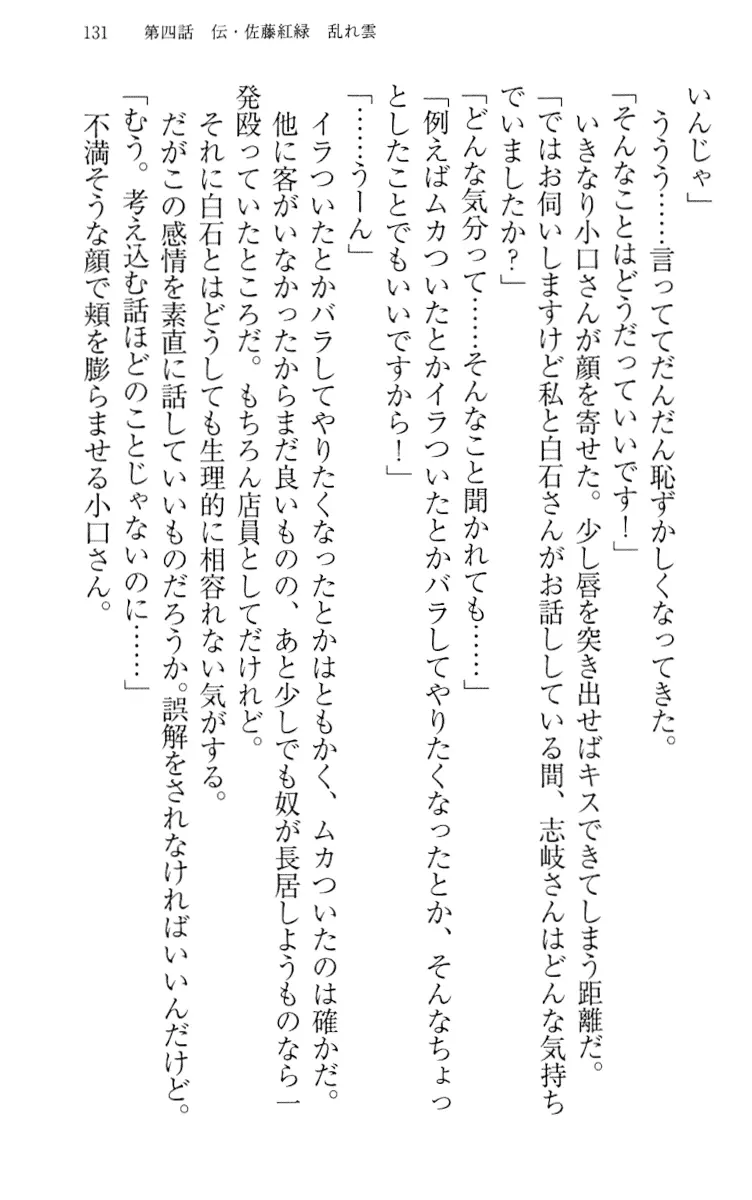 131　第四話　伝・佐藤紅緑　乱れ雲
いんじゃ」
　ううう……言っててだんだん恥ずかしくなってきた。
「そんなことはどうだっていいです！」
　いきなり小口さんが顔を寄せた。少し唇を突き出せばキスできてしまう距離だ。
「ではお伺いしますけど私と白石さんがお話ししている間、志岐さんはどんな気持ち
でいましたか？」
「どんな気分って……そんなこと聞かれても……」
「例えばムカついたとかイラついたとかバラしてやりたくなったとか、そんなちょっ
としたことでもいいですから！」
「……うーん」
　イラついたとかバラしてやりたくなったとかはともかく、ムカついたのは確かだ。
　他に客がいなかったからまだ良いものの、あと少しでも奴が長居しようものなら一
発殴っていたところだ。もちろん店員としてだけれど。
　それに白石とはどうしても生理的に相容れない気がする。
　だがこの感情を素直に話していいものだろうか。誤解をされなければいいんだけど。
「むう。考え込む話ほどのことじゃないのに……」
　不満そうな顔で頬を膨らませる小口さん。